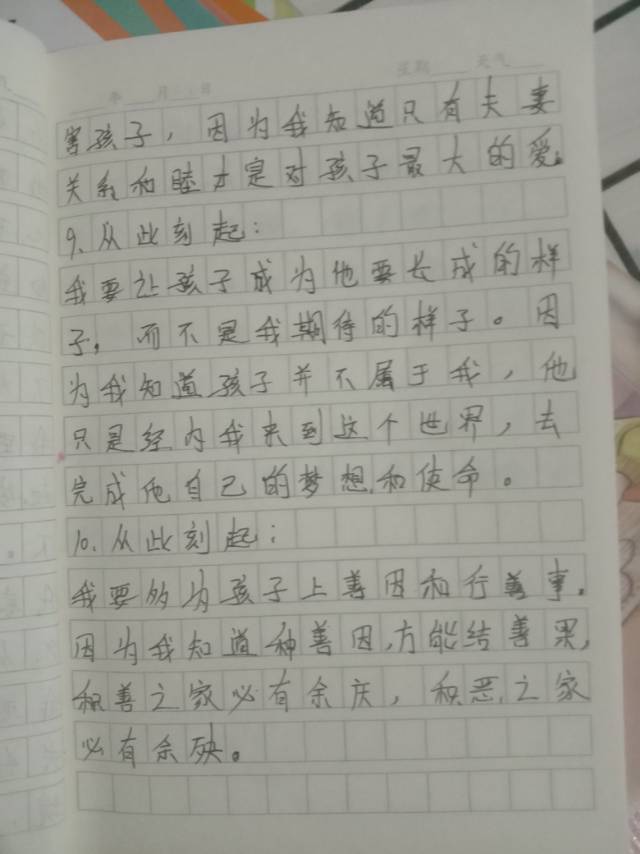 年 月 日 星期 天气
害孩子，因为我知道只有夫妻
关系和睦才是对孩子最大的爱。
9、从此刻起：
我要让孩子成为他要长成的样
子，而不是我期待的样子。因
为我知道孩子并不属于我，他
只是经由我来到这个世界，去
完成他自己的梦想和使命。
10、从此刻起：
我要多为孩子上善因和行善事，
因为我知道种善因，方能结善果，
积善之家必有余庆，积恶之家
必有余殃。